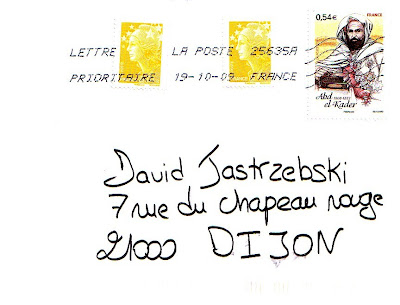 LETTRE LA POSTE 25635A
PRIORITAIRE 19-10-09 FRANCE
0,54€ FRANCE
Abd
el-Kader
David Jastrzebski
7 rue du chapeau rouge
21000 DIJON